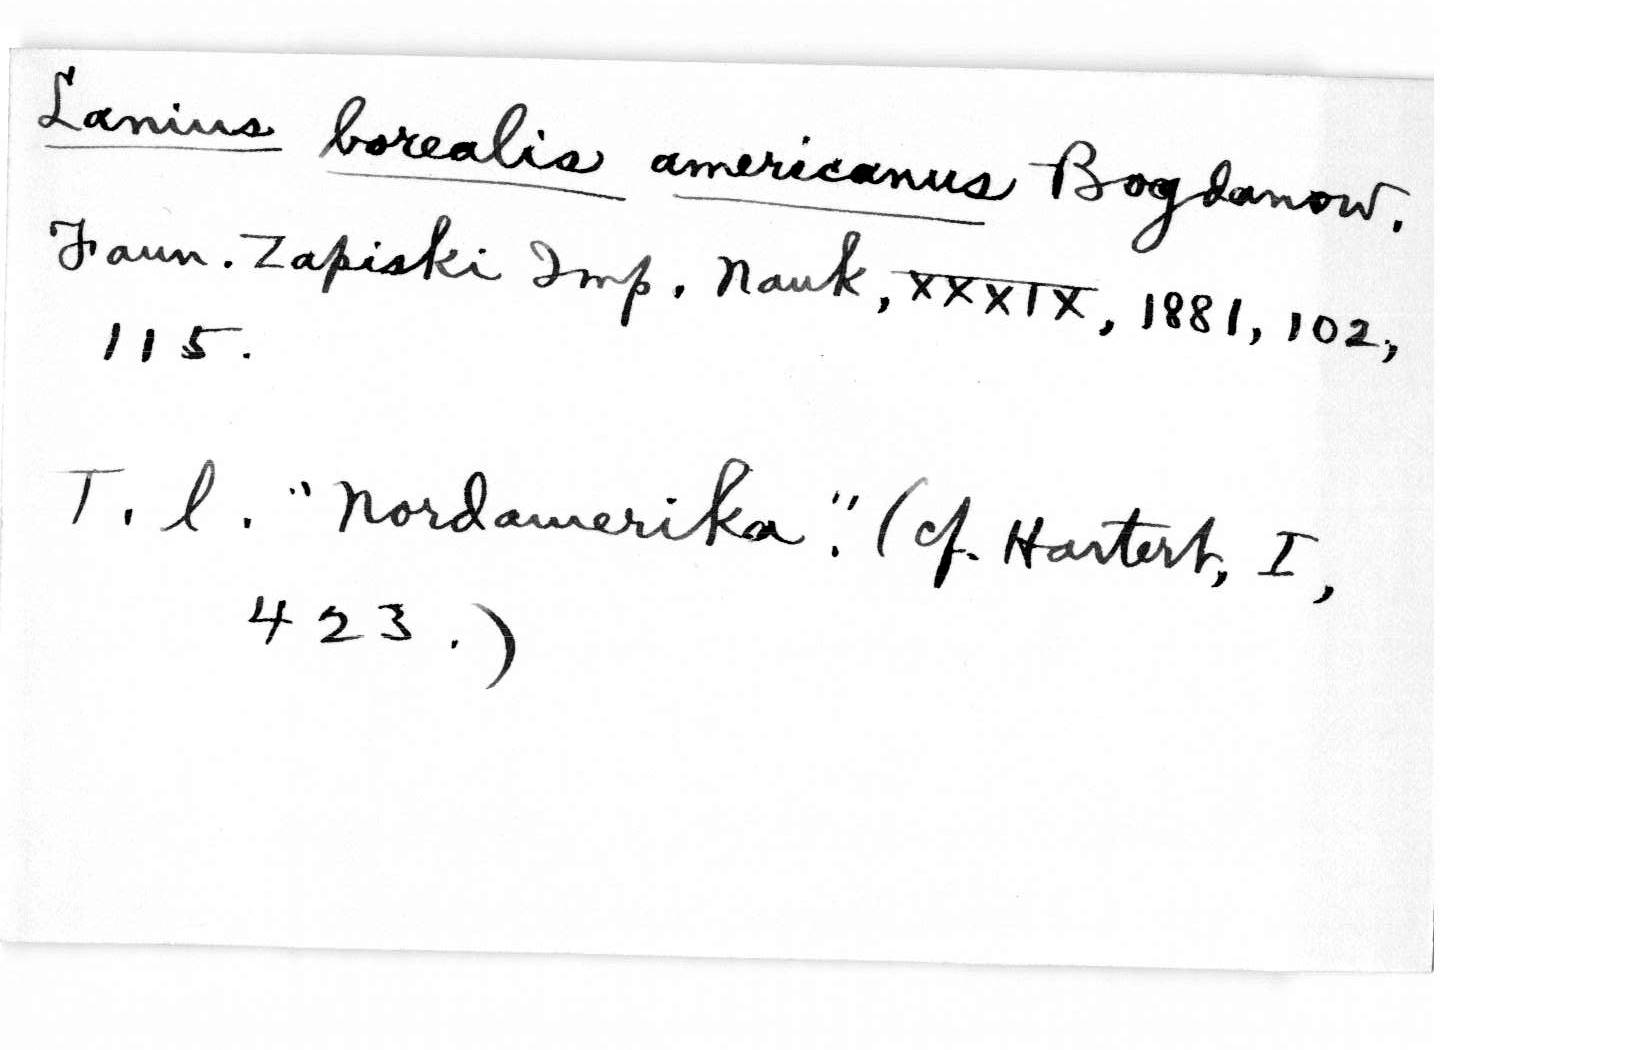 Lanius borealis americanus Bogdanow.
Faun. Zapiski Imp. Nauk, XXXIX, 1881, 102,
115.
T. l. "Nordamerika". (cf. Hartert, I,
423.)